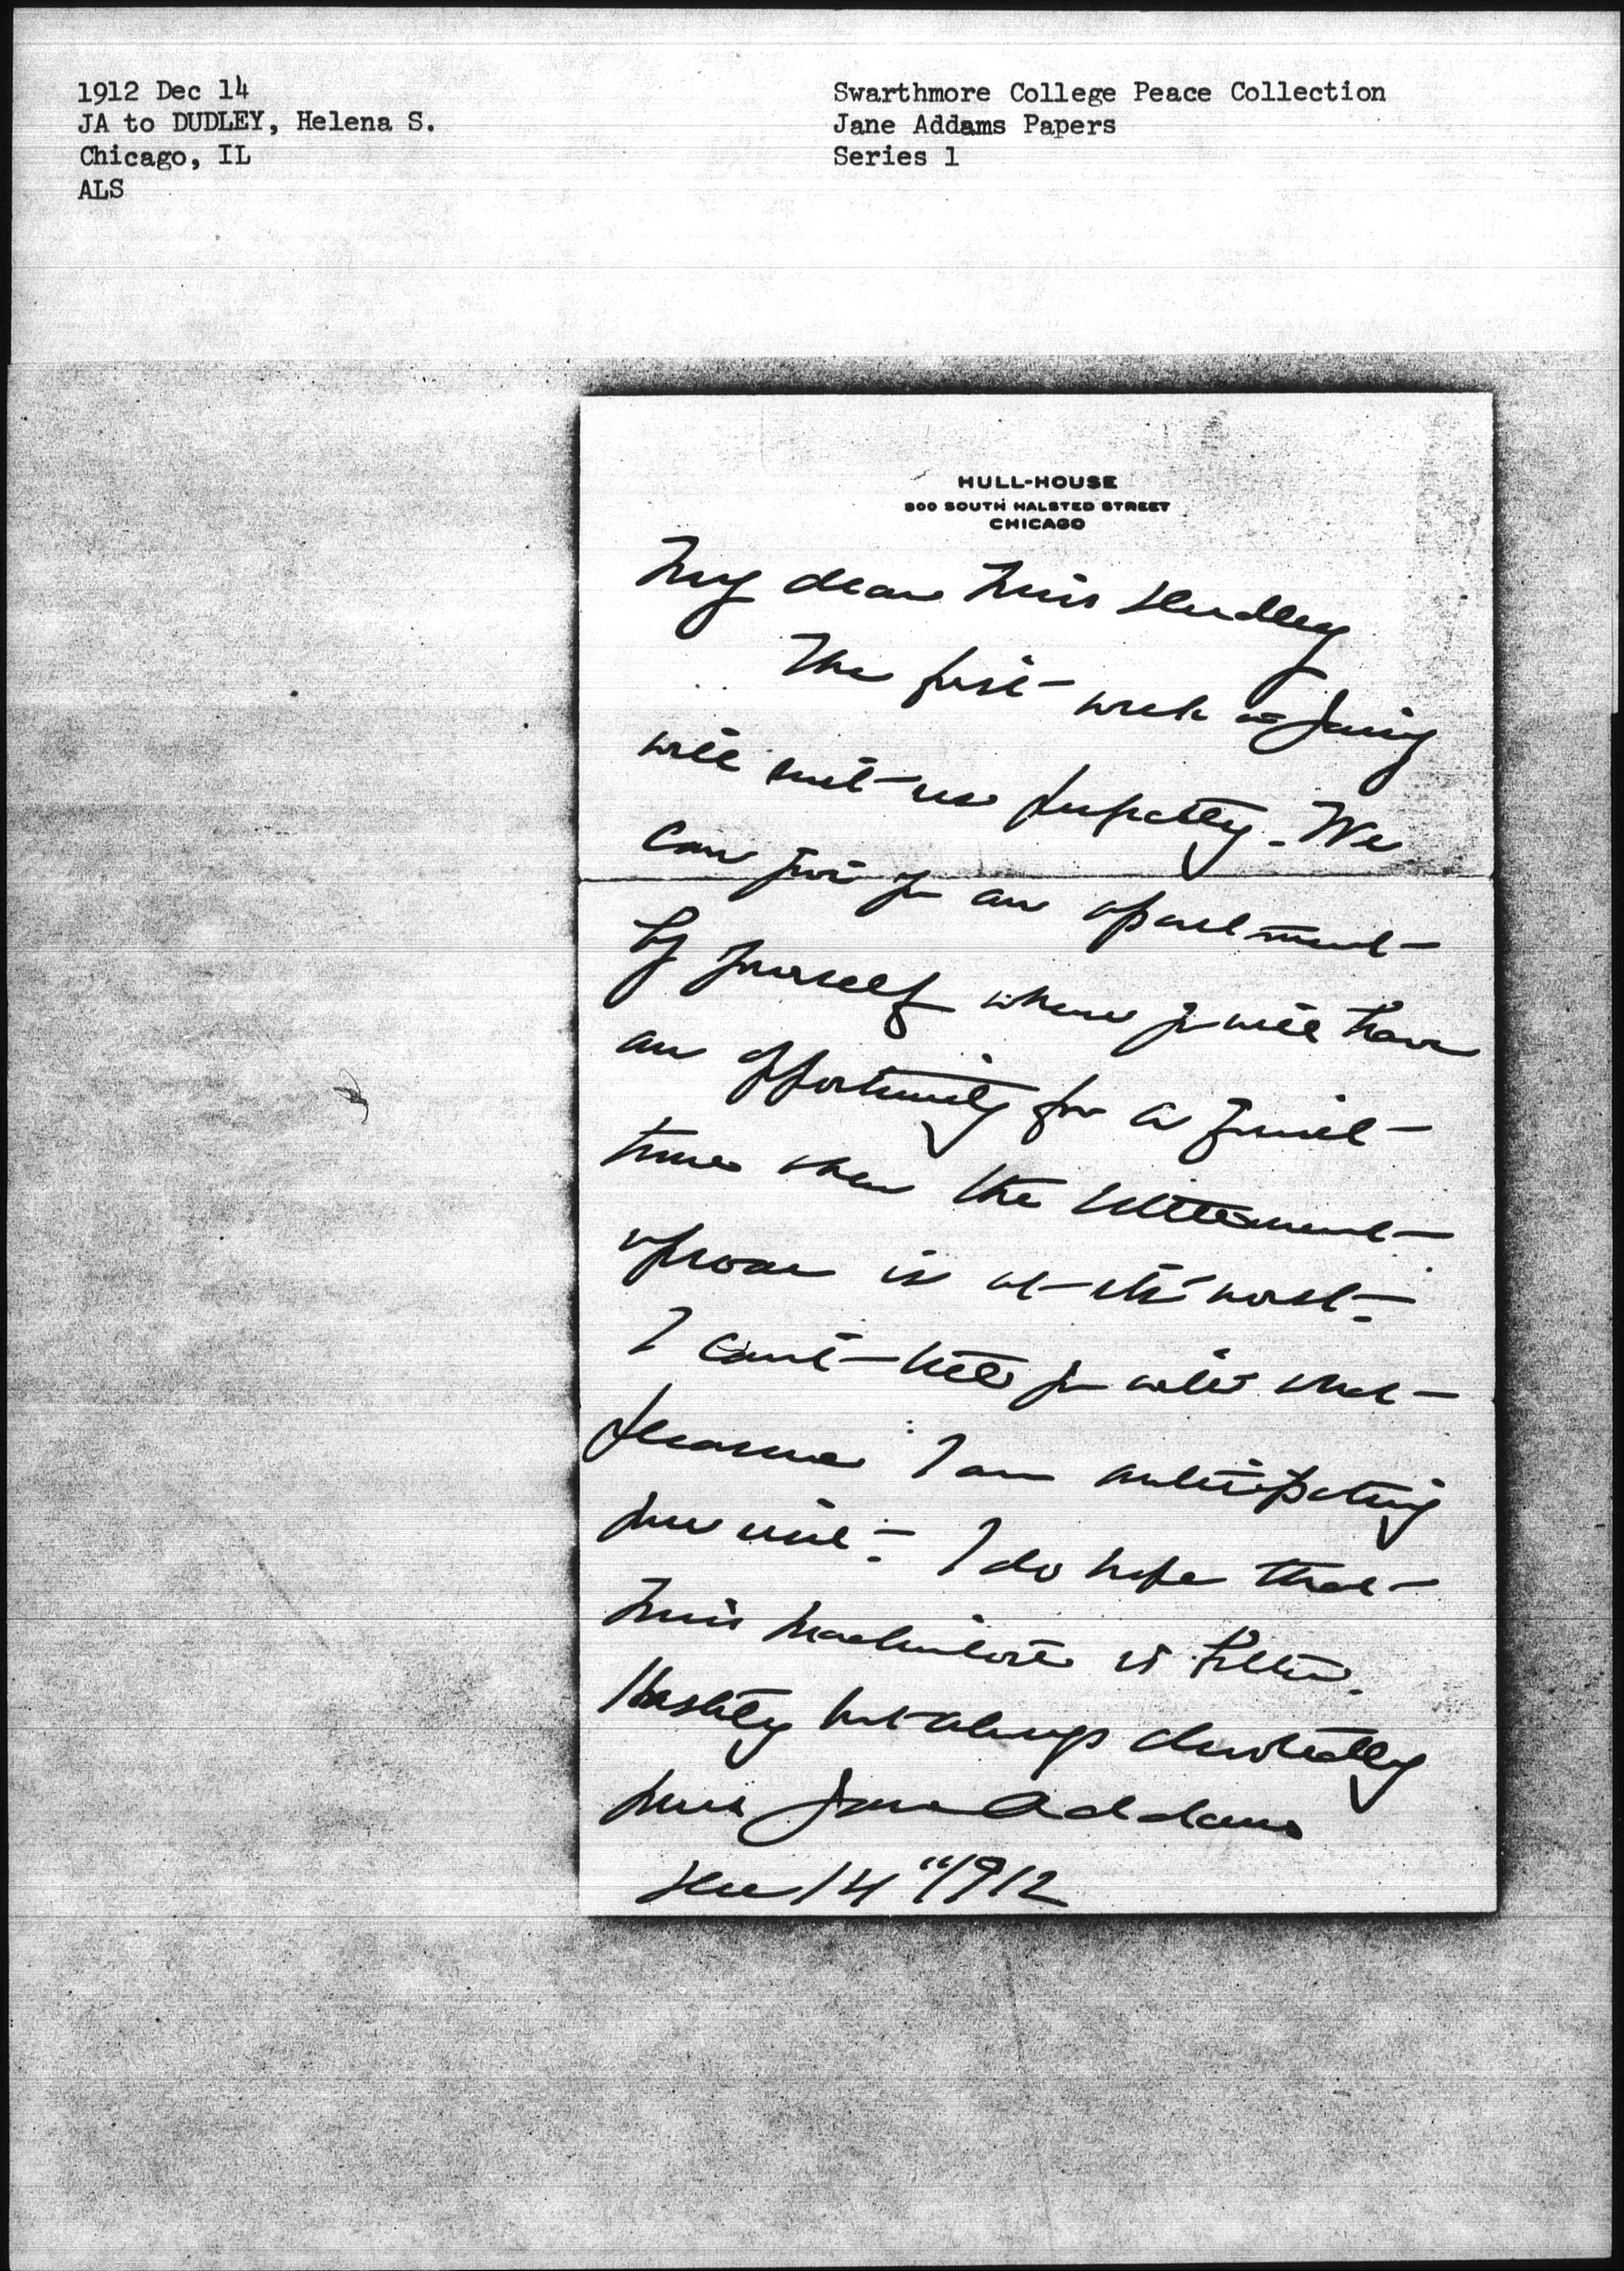 1912 Dec 14
JA to DUDLEY, Helena S.
Chicago, IL
ALS
Swarthmore College Peace Collection
Jane Addams Papers
Series 1
HULL-HOUSE
800 SOUTH HALSTED STREET
CHICAGO
My dear Miss Dudley
The first week of Jan'y
will suit us perfectly. We
can give you an apartment
by yourself where you will have
an opportunity for a quiet
time when the settlement
uproar is at its worst.
I can't tell you with what
pleasure I am anticipating
your visit. I do hope that
Miss is better.
Hastily but always devotedly
yours Jane Addams
Dec 14" 1912